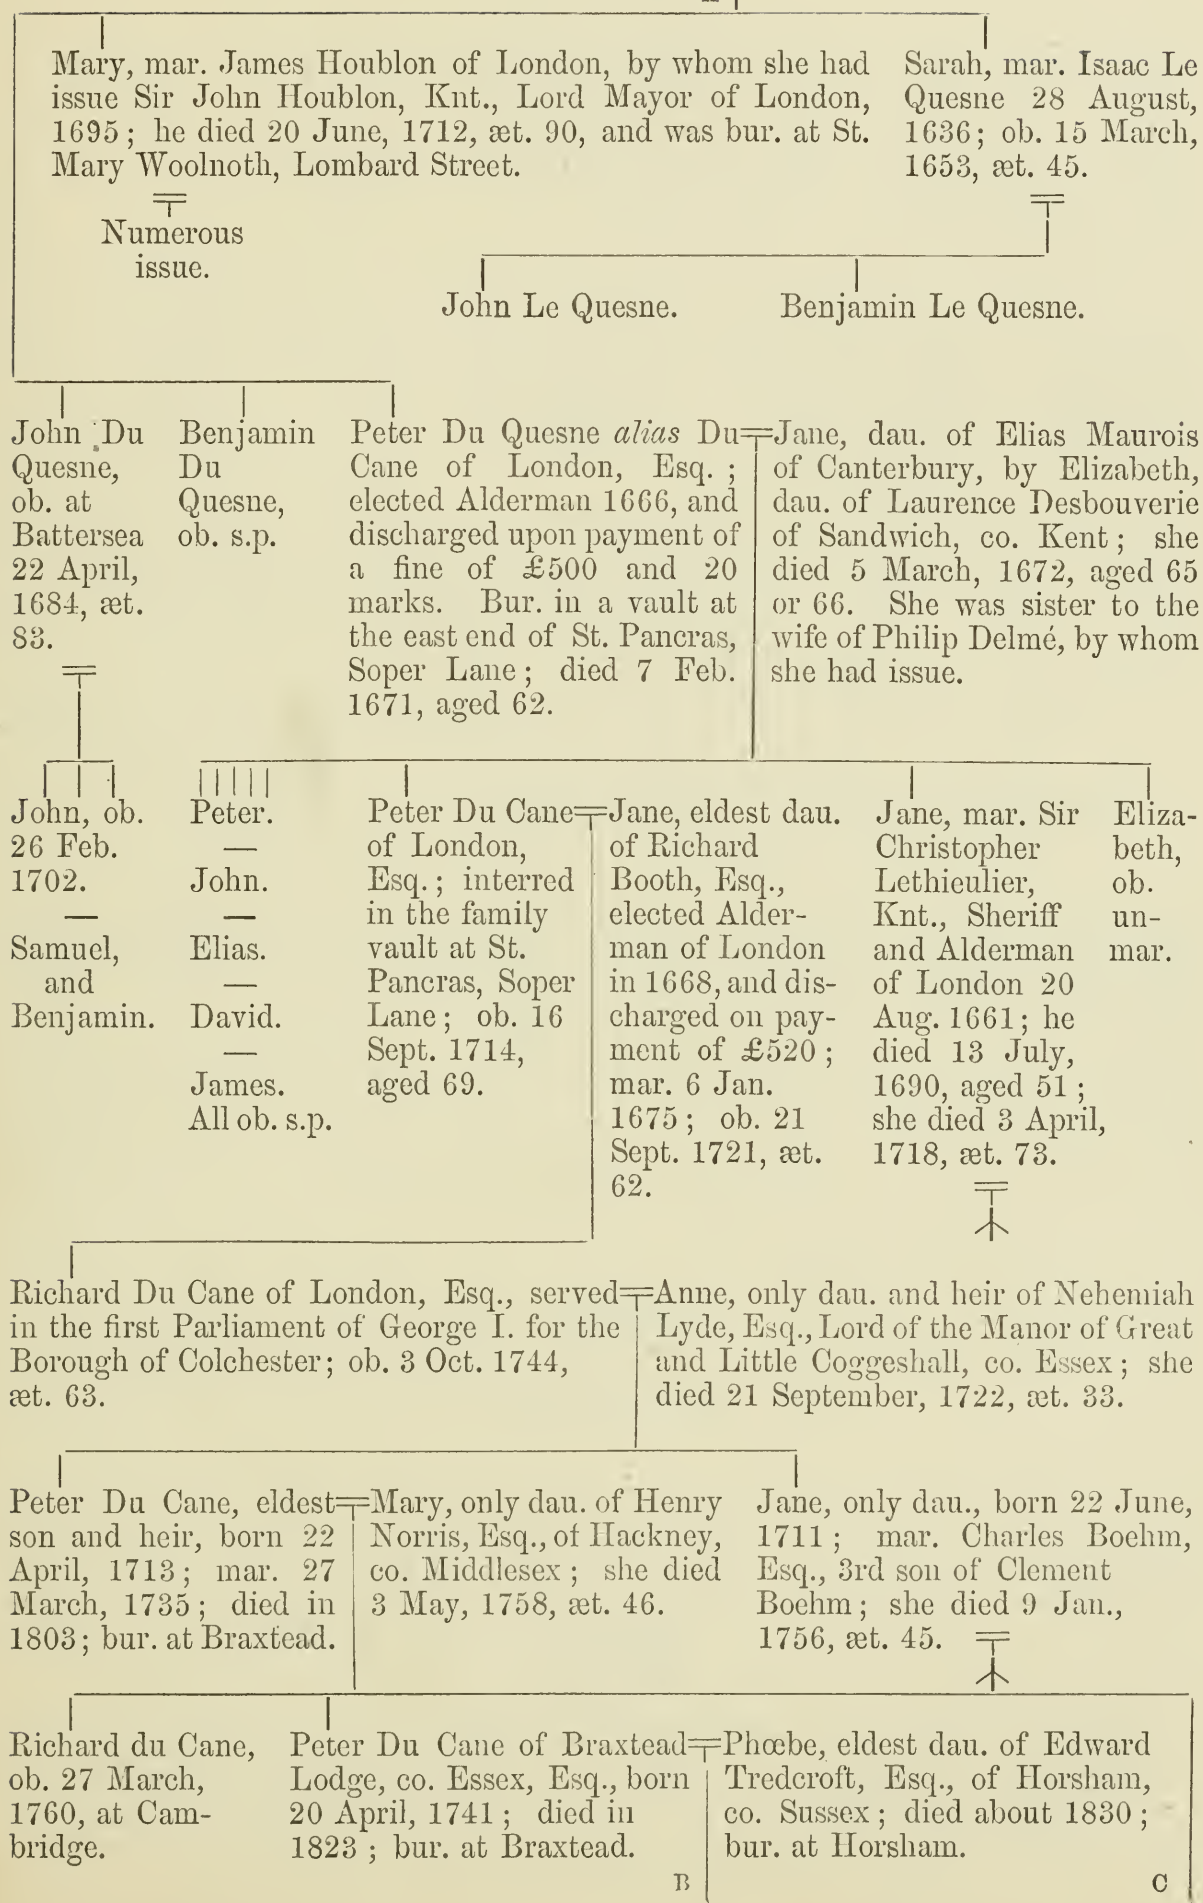 Mary, mar. James Houblon of London, by whom she had
issue Sir John Houblon, Knt., Lord Mayor of London,
1695; he died 20 June, 1712, æt. 90, and was bur. at St.
Mary Woolnoth, Lombard Street.
Sarah, mar. Isaac Le
Quesne 28 August,
1636; ob. 15 March,
1653, æt. 45.
Numerous
issue.
John Le Quesne.
Benjamin Le Quesne.
John Du
Quesne,
ob. at
Battersea
22 April,
1684, æt.
83.
Benjamin
Du
Quesne,
ob. s.p.
Peter Du Quesne alias Du
Cane of London, Esq.;
elected Alderman 1666, and
discharged upon payment of
a fine of £500 and 20
marks. Bur. in a vault at
the east end of St. Pancras,
Soper Lane; died 7 Feb.
1671, aged 62.
Jane, dau. of Elias Maurois
of Canterbury, by Elizabeth,
dau. of Laurence Desbouverie
of Sandwich, co. Kent; she
died 5 March, 1672, aged 65
or 66. She was sister to the
wife of Philip Delmé, by whom
she had issue.
John, ob.
26 Feb.
1702.
—
Samuel,
and
Benjamin.
Peter.
—
John.
—
Elias.
—
David.
—
James.
All ob. s.p.
Peter Du Cane
of London,
Esq.; interred
in the family
vault at St.
Pancras, Soper
Lane; ob. 16
Sept. 1714,
aged 69.
Jane, eldest dau.
of Richard
Booth, Esq.,
elected Alder-
man of London
in 1668, and dis-
charged on pay-
ment of £520;
mar. 6 Jan.
1675; ob. 21
Sept. 1721, æt.
62.
Jane, mar. Sir
Christopher
Lethieulier,
Knt., Sheriff
and Alderman
of London 20
Aug. 1661; he
died 13 July,
1690, aged 51;
she died 3 April,
1718, æt. 73.
Eliza-
beth,
ob.
un-
mar.
Richard Du Cane of London, Esq., served
in the first Parliament of George I. for the
Borough of Colchester; ob. 3 Oct. 1744,
æt. 63.
Anne, only dau. and heir of Nehemiah
Lyde, Esq., Lord of the Manor of Great
and Little Coggeshall, co. Essex; she
died 21 September, 1722, æt. 33.
Peter Du Cane, eldest
son and heir, born 22
April, 1713; mar. 27
March, 1735; died in
1803; bur. at Braxtead.
Mary, only dau. of Henry
Norris, Esq., of Hackney,
co. Middlesex; she died
3 May, 1758, æt. 46.
Jane, only dau., born 22 June,
1711; mar. Charles Boehm,
Esq., 3rd son of Clement
Boehm; she died 9 Jan.,
1756, æt. 45.
Richard du Cane,
ob. 27 March,
1760, at Cam-
bridge.
Peter Du Cane of Braxtead
Lodge, co. Essex, Esq., born
20 April, 1741; died in
1823; bur. at Braxtead.
Phœbe, eldest dau. of Edward
Tredcroft, Esq., of Horsham,
co. Sussex; died about 1830;
bur. at Horsham.
B
C